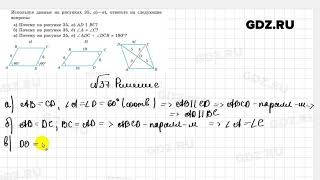 Используя данные на рисунках 35, а)—в), ответьте на следующие
вопросы:
а) Почему на рисунке 35, а) AD ∥ BC?
б) Почему на рисунке 35, б) ∠A = ∠C?
в) Почему на рисунке 35, в) ∠ADC + ∠DCB = 180°?
GDZ.RU
а)
б)
в)
№37 Решение
а) AB = CD, ∠A = ∠D = 60° (соотв) ⇒ AB ∥ CD ⇒ ABCD - паралл-м ⇒
⇒ AD ∥ BC
б) AB = DC; BC = AD ⇒ ABCD - паралл-м ⇒ ∠A = ∠C
в) DO =
GDZ.RU